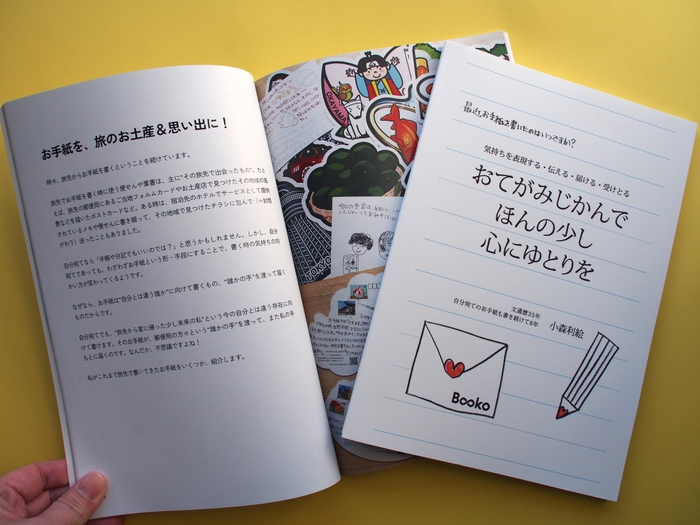 お手紙を、旅のお土産＆思い出に！
時々、旅先からお手紙を書くということを続けています。
旅先でお手紙を書く時に使う便せんや葉書は、主に“その旅先で出会ったもの”。たと
えば、旅先の郵便局にあるご当地フォルムカードやお土産店で見つけたその地域の風
景などを描いたポストカードなど。ある時は、宿泊先のホテルでサービスとして提供
されているメモや便せんに書を綴って、その地域で見つけたチラシに包んで（＝封筒
がわり）送ったこともありました。
自分宛てなら「手帳や日記でもいいのでは？」と思うかもしれません。しかし、自分
宛てであっても、わざわざお手紙という形・手段にすることで、書く時の気持ちの向
かい方が変わってくるようです。
なぜなら、お手紙は“自分とは違う誰か”に向けて書くもの、“誰かの手”を渡って届く
ものだからです。
自分宛てでも、“旅先から家に帰った少し未来の私”という今の自分とは違う存在に向
けて書けます。そのお手紙が、郵便局の方々という“誰かの手”を渡って、また私の手
もとに届くのです。なんだか、不思議ですよね！
私がこれまで旅先で書いてきたお手紙をいくつか、紹介します。
OKAYAMA
TOKYO
最近、お手紙を書いたのはいつですか？
気持ちを表現する・伝える・届ける・受けとる
おてがみじかんで
ほんの少し
心にゆとりを
文通歴35年
自分宛てのお手紙も書き続けて8年
小森利絵
Booko